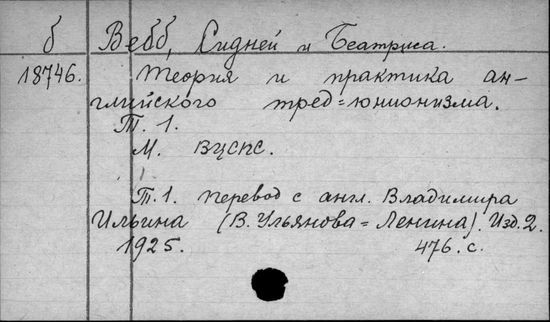 б Вебб, Сидней и Беатриса.
18746. Теория и практика ан-
глийского тред=юнионизма.
Т. 1.
М. ВЦСПС.
Т. 1. перевод с англ. Владимира
Ильина (В. Ульянова=Ленина). Изд. 2.
1925. 476. с.